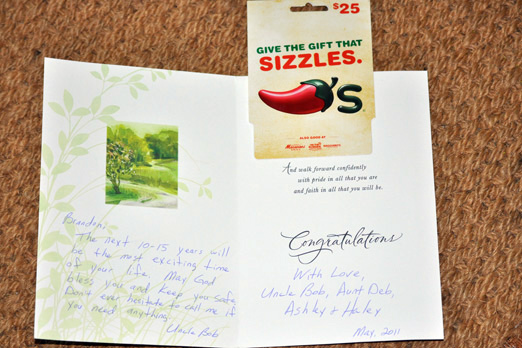 $25
GIVE THE GIFT THAT
SIZZLES.
'S
ALSO GOOD AT
And walk forward confidently
with pride in all that you are
and faith in all that you will be.
Congratulations
With Love,
Uncle Bob, Aunt Deb,
Ashley & Haley
May, 2011
Brandon:
The next 10-15 years will
be the most exciting time
of your life. May God
bless you and keep you safe.
Don't ever hesitate to call me if
you need anything.
Uncle Bob